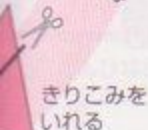 きりこみを
いれる